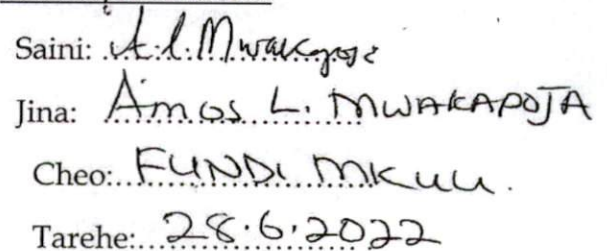 Saini: A.L. Mwakapoja
Jina: Amos L. MWAKAPOJA
Cheo: FUNDI MKUU.
Tarehe: 28.6.2022